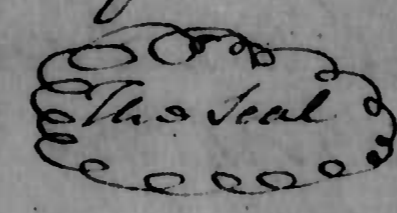 The Seal